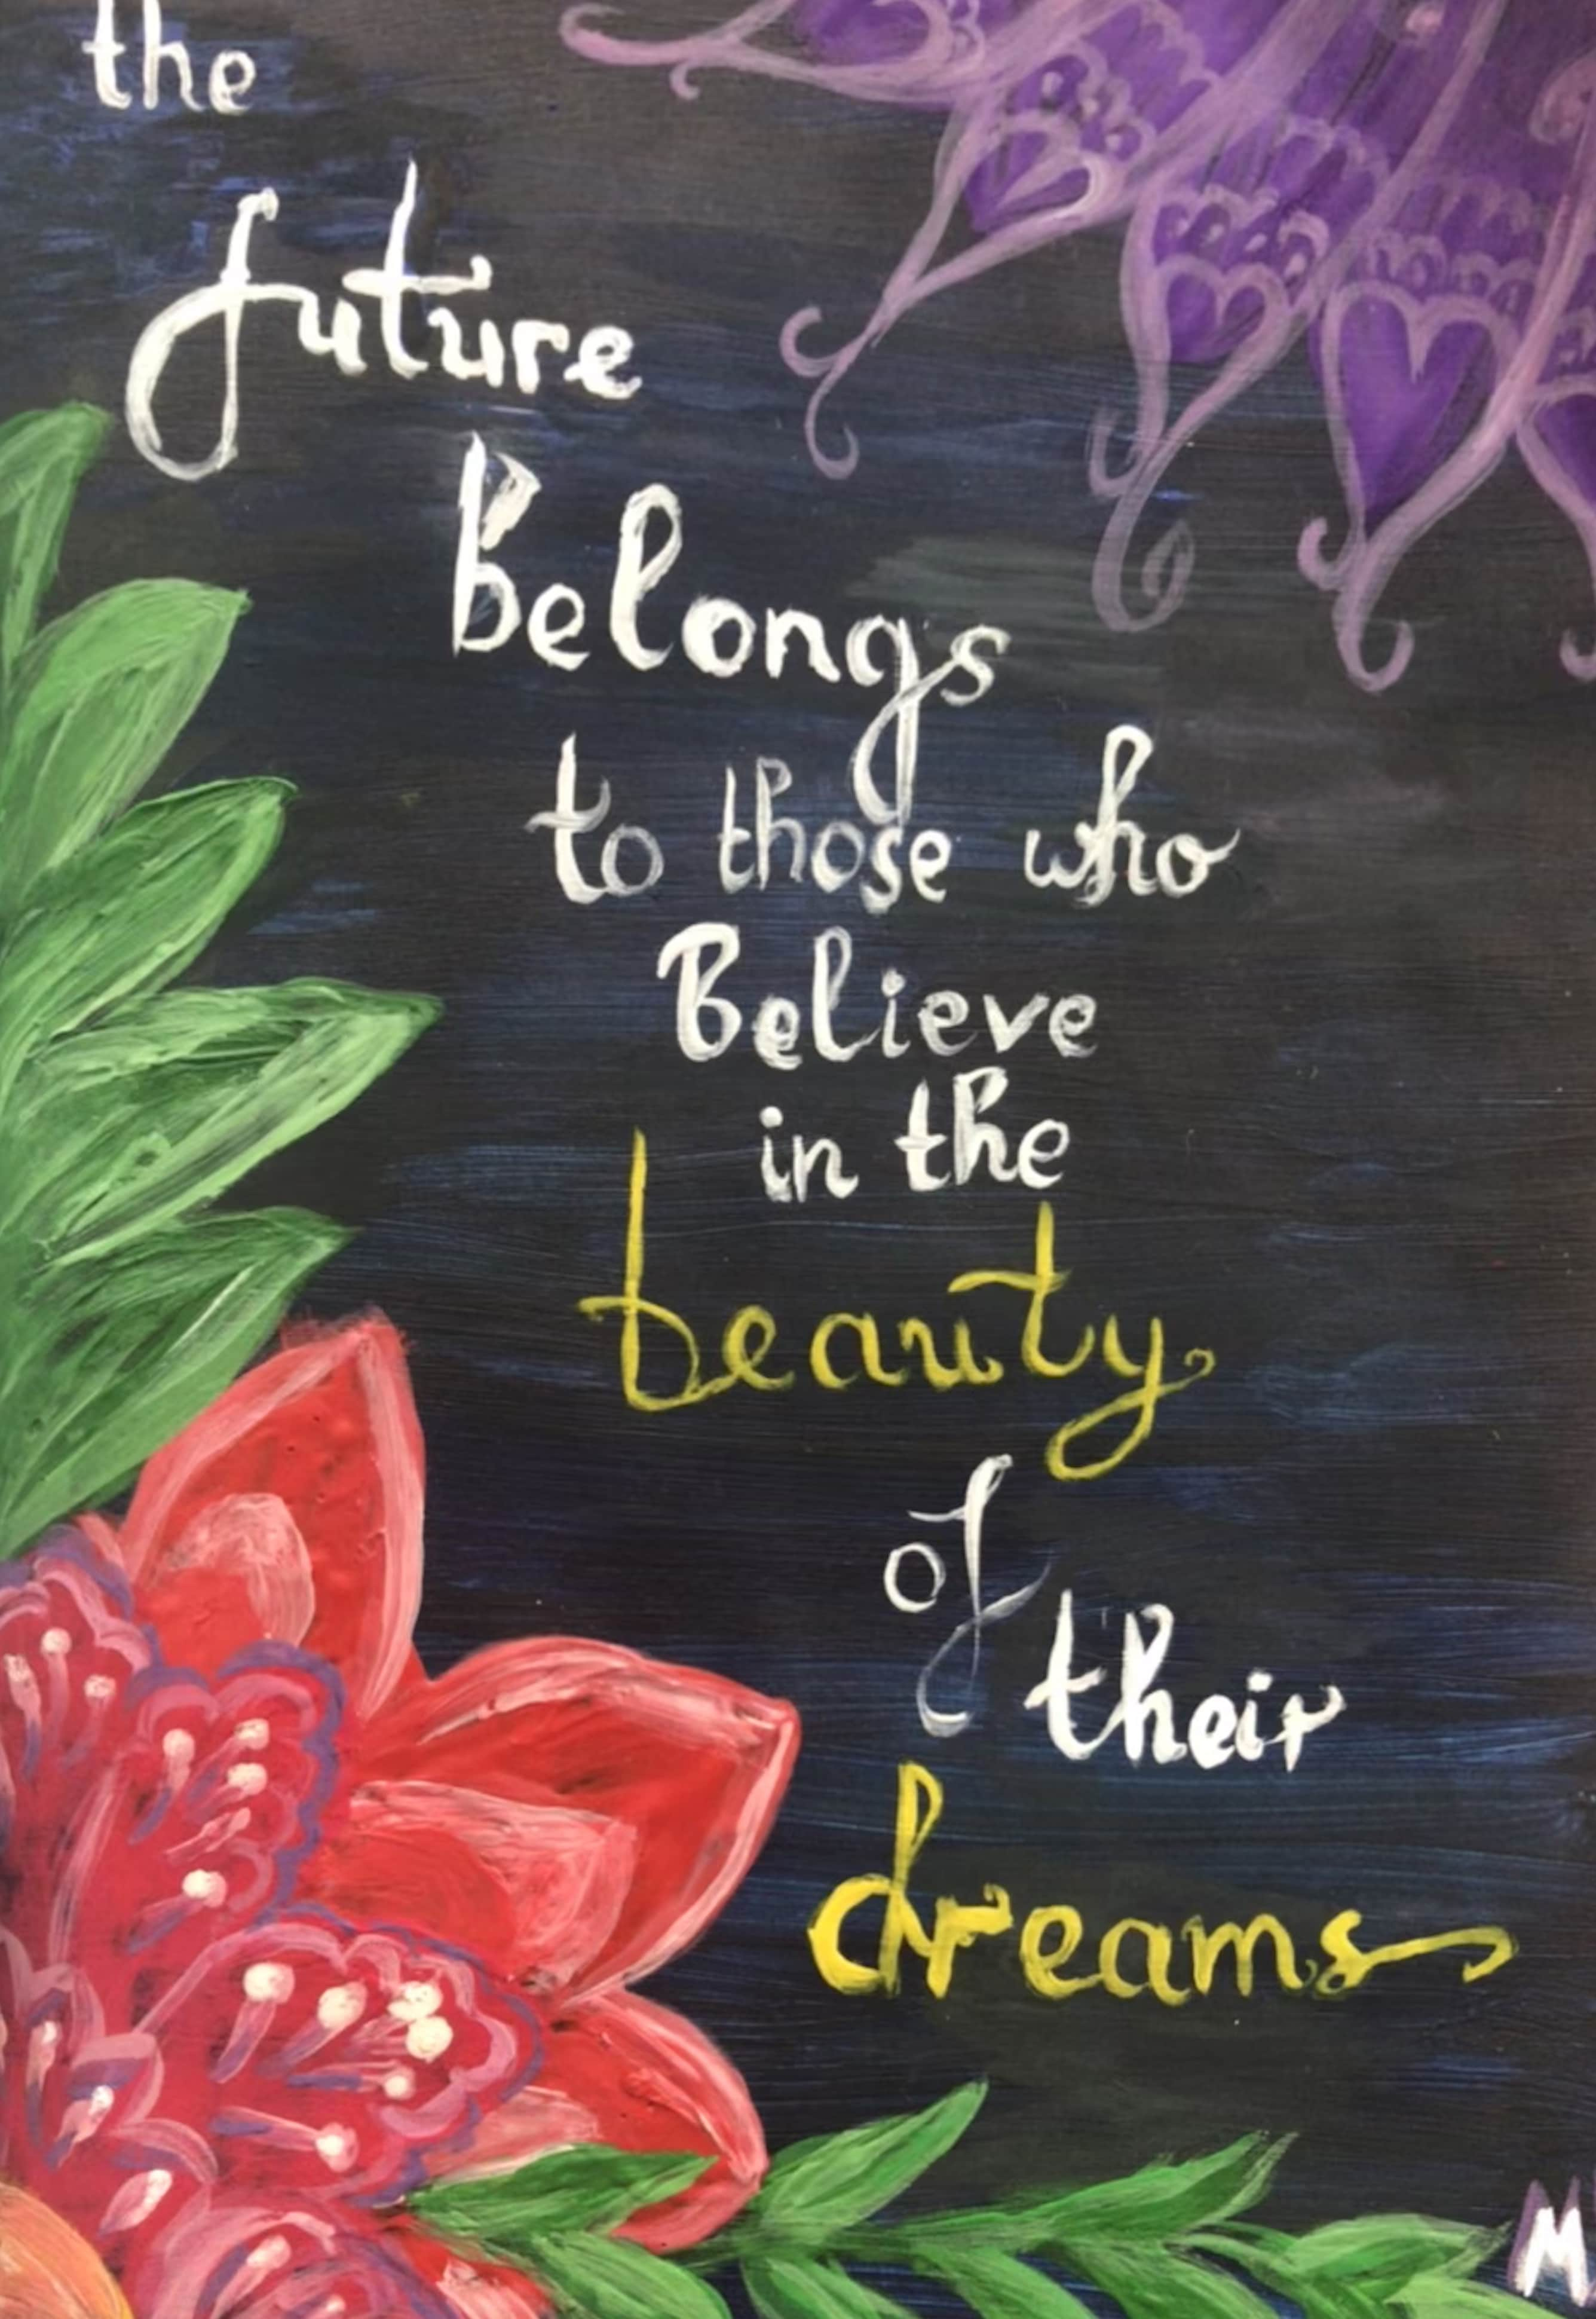 the
future
belongs
to those who
Believe
in the
beauty
of
their
dreams
M